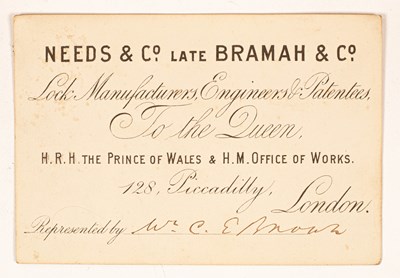 NEEDS & Co. LATE BRAMAH & Co.
Lock Manufacturers, Engineers & Patentees,
To the Queen,
H.R.H. THE PRINCE OF WALES & H.M. OFFICE OF WORKS.
128, Piccadilly,
London.
Represented by Mr. C. E.